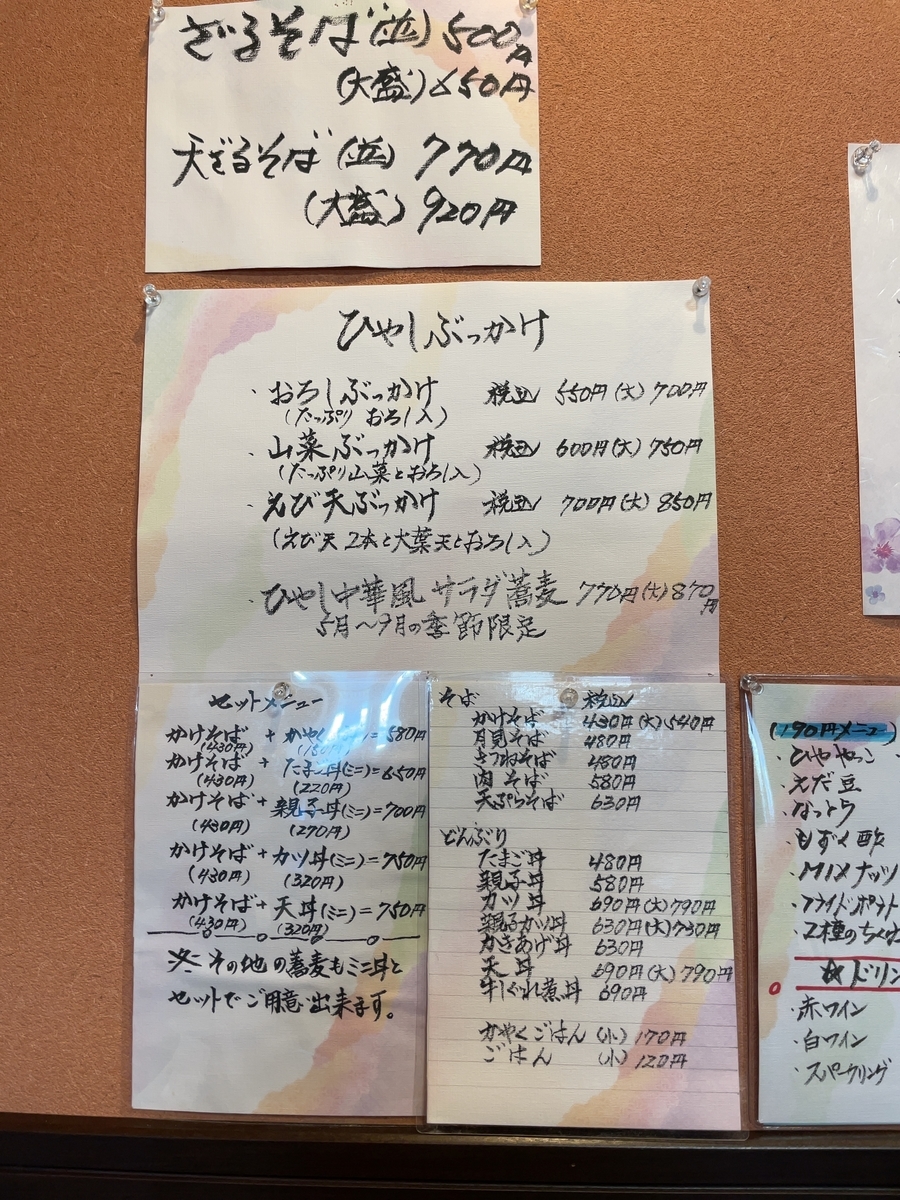 ざるそば(並)500円
(大盛)650円
天ざるそば(並)770円
(大盛)920円
ひやしぶっかけ
・おろしぶっかけ 税込 550円(大)700円
(たっぷりおろし入)
・山菜ぶっかけ 税込 600円(大)750円
(たっぷり山菜とおろし入)
・えび天ぶっかけ 税込 700円(大)850円
(えび天2本と大葉天とおろし入)
・ひやし中華風サラダ蕎麦 770円(大)870円
5月〜9月の季節限定
セットメニュー
かけそば + かやく =580円
(430円) (150円)
かけそば + たま丼(ミニ)=650円
(430円) (220円)
かけそば + 親子丼(ミニ)=700円
(430円) (270円)
かけそば + カツ丼(ミニ)=750円
(430円) (320円)
かけそば + 天丼(ミニ)=750円
(430円) (320円)
その他の蕎麦もミニ丼と
セットでご用意出来ます。
そば 税込
かけそば 430円(大)540円
月見そば 480円
きつねそば 480円
肉そば 580円
天ぷらそば 630円
どんぶり
たまご丼 480円
親子丼 580円
カツ丼 690円(大)790円
親子カツ丼 630円(大)730円
かきあげ丼 630円
天丼 690円(大)790円
牛しぐれ煮丼 690円
かやくごはん (小)170円
ごはん (小)120円
(190円メニュー)
・ひややっこ
・えだ豆
・なっとう
・もずく酢
・MIXナッツ
・フライドポテト
・2種のちくわ
☆ドリン
・赤ワイン
・白ワイン
・スパークリング